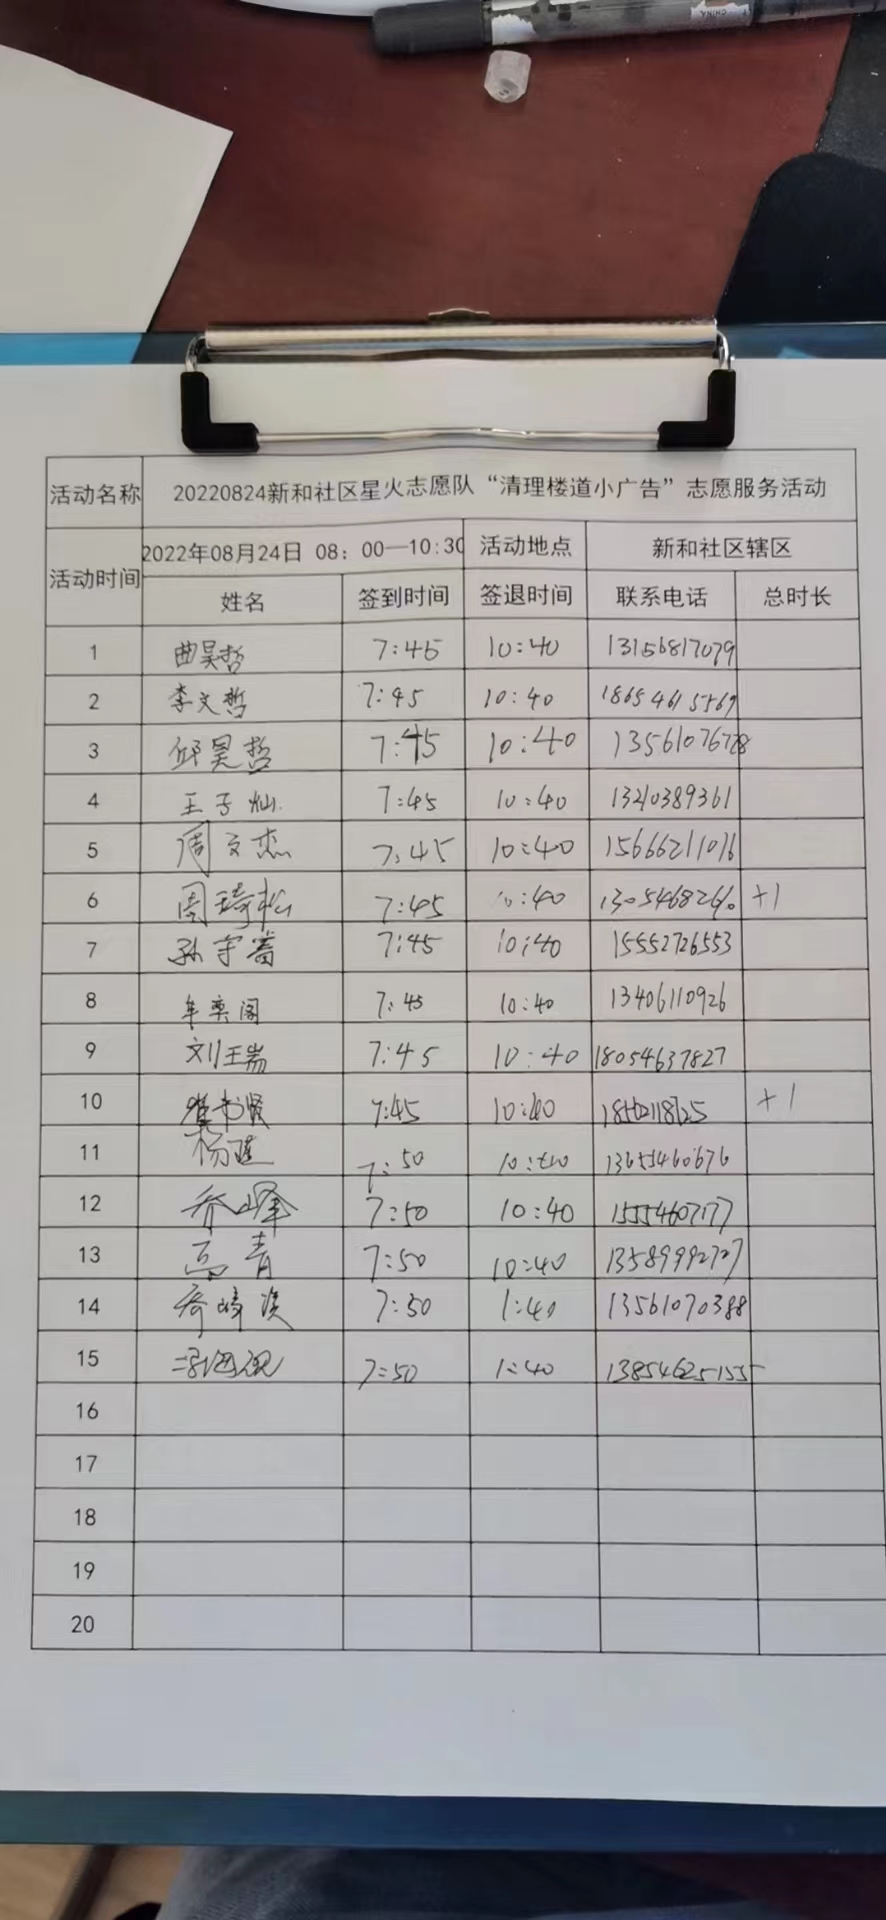 CHINA
活动名称 20220824新和社区星火志愿队“清理楼道小广告”志愿服务活动
活动时间 2022年08月24日 08：00—10:30 活动地点 新和社区辖区
姓名 签到时间 签退时间 联系电话 总时长
1 曲昊哲 7:45 10:40 13156817079
2 李文哲 7:45 10:40
3 邱昊哲 7:45 10:40
4 王子灿 7:45 10:40 13210389361
5 周文杰 7:45 10:40 15666211076
6 周琦松 7:45 10:40 +1
7 孙宇 7:45 10:40 15552726553
8 牟奕阁 7:45 10:40 13406110926
9 刘王嵩 7:45 10:40 18054637827
10 书贤 7:45 10:40 +1
11 杨莲 7:50 10:40 13655460676
12 乔峰 7:50 10:40 15554607177
13 高青 7:50 10:40 13589992727
14 7:50 1:40 13561070388
15 7:50 1:40
16
17
18
19
20